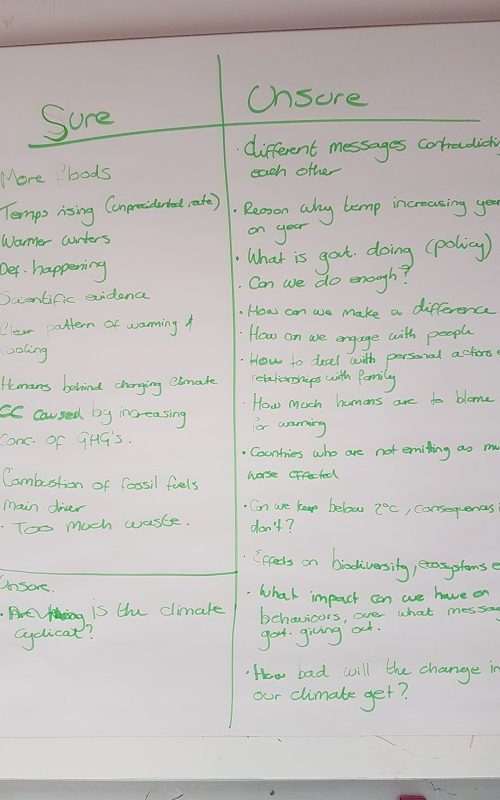 Sure
More floods
Temps rising (unprecidented rate)
Warmer winters
Def. happening
Scientific evidence
Clear pattern of warming &
cooling
Humans behind changing climate
CC caused by increasing
conc. of GHG's.
Combustion of fossil fuels
main driver
· Too much waste.
Unsure.
· is the climate
cyclical?
Unsure
· different messages contradictin
each other
· Reason why temp increasing year
on year
· What is govt. doing (policy)
· Can we do enough?
· How can we make a difference
· How can we engage with people
· How to deal with personal actions
relationships with family
· How much humans are to blame
for warming
· Countries who are not emitting as mu
worse affected
· Can we keep below 2°c, consequences
don't?
· Effects on biodiversity, ecosystems e
· What impact can we have on
behaviours, over what messag
govt. giving out.
· How bad will the change in
our climate get?